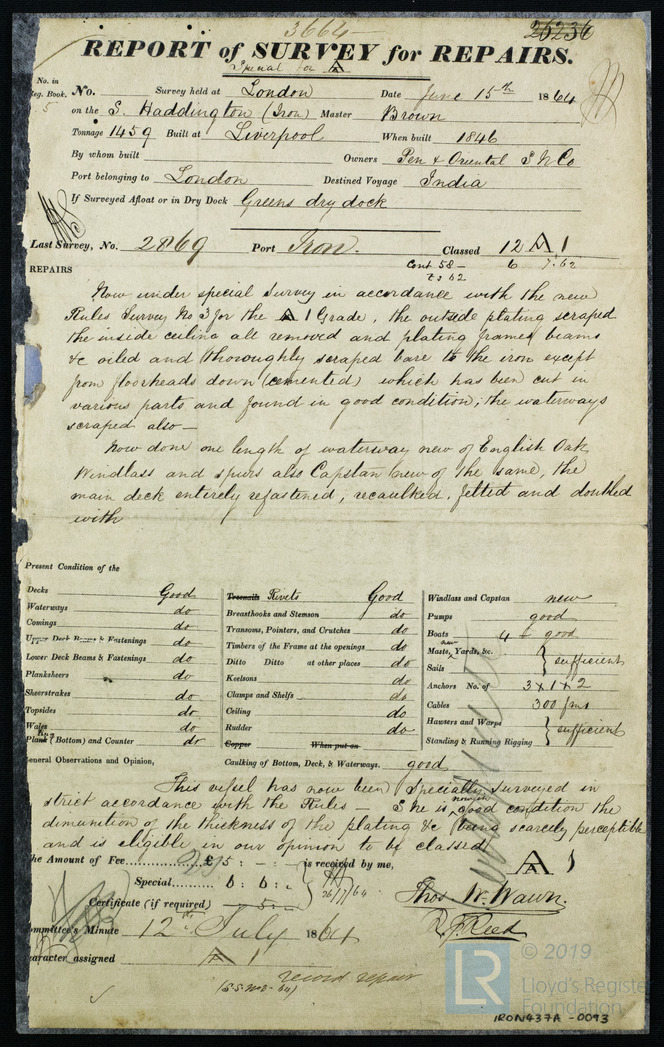 3664
25236
REPORT of SURVEY for REPAIRS.
Special for A
No. in Reg. Book.
5
No. Survey held at London Date June 15th 1864
on the S. Haddington (Iron) Master Brown
Tonnage 1459 Built at Liverpool When built 1846
By whom built Owners Pen & Oriental S N Co
Port belonging to London Destined Voyage India
If Surveyed Afloat or in Dry Dock Greens dry dock
Last Survey, No. 2869 Port Iron. Classed 12 A 1
Cont 58 – 6 7.62
7s 62
REPAIRS
Now under special Survey in accordance with the new
Rules Survey No 3 for the A 1 Grade, the outside plating scraped
the inside ceiling all removed and plating frames beams
&c oiled and thoroughly scraped bare to the iron except
from floorheads down (cemented) which has been cut in
various parts and found in good condition; the waterways
scraped also —
Now done one length of waterway new of English Oak
Windlass and spurs also Capstan new of the same, the
main deck entirely refastened, recaulked, felted and doubled
with
Present Condition of the
Decks Good
Waterways do
Comings do
Upper Deck Beams & Fastenings do
Lower Deck Beams & Fastenings do
Planksheers do
Sheerstrakes do
Topsides do
Wales do
Plank (Bottom) and Counter do
Treenails Rivets Good
Breasthooks and Stemson do
Transons, Pointers, and Crutches do
Timbers of the Frame at the openings do
Ditto Ditto at other places do
Keelsons do
Clamps and Shelfs do
Ceiling do
Rudder do
Copper When put on
Caulking of Bottom, Deck, & Waterways. good
Windlass and Capstan new
Pumps good
Boats 4 – good
new
Masts, Yards, &c.
Sails } sufficient
Anchors No. of 3 x 1 x 2
Cables 300 fms
Hawsers and Warps
Standing & Running Rigging } sufficient
General Observations and Opinion,
This vessel has now been Specially Surveyed in
strict accordance with the Rules — She is now in good condition the
dimanition of the thickness of the plating &c being scarcely perceptible
and is eligible in our opinion to be classed A 1
The Amount of Fee £5 : – : – is received by me,
Special 6 : 6 : –
26/7/64
Certificate (if required) 5 : –
Thos. W. Wawn.
R. J. Reed
Committee's Minute 12th July 1864
Character assigned A 1
record repair
(S.S. No 2 - 64)
© 2019
LR
Lloyd's Register
Foundation
IRON437A -0093